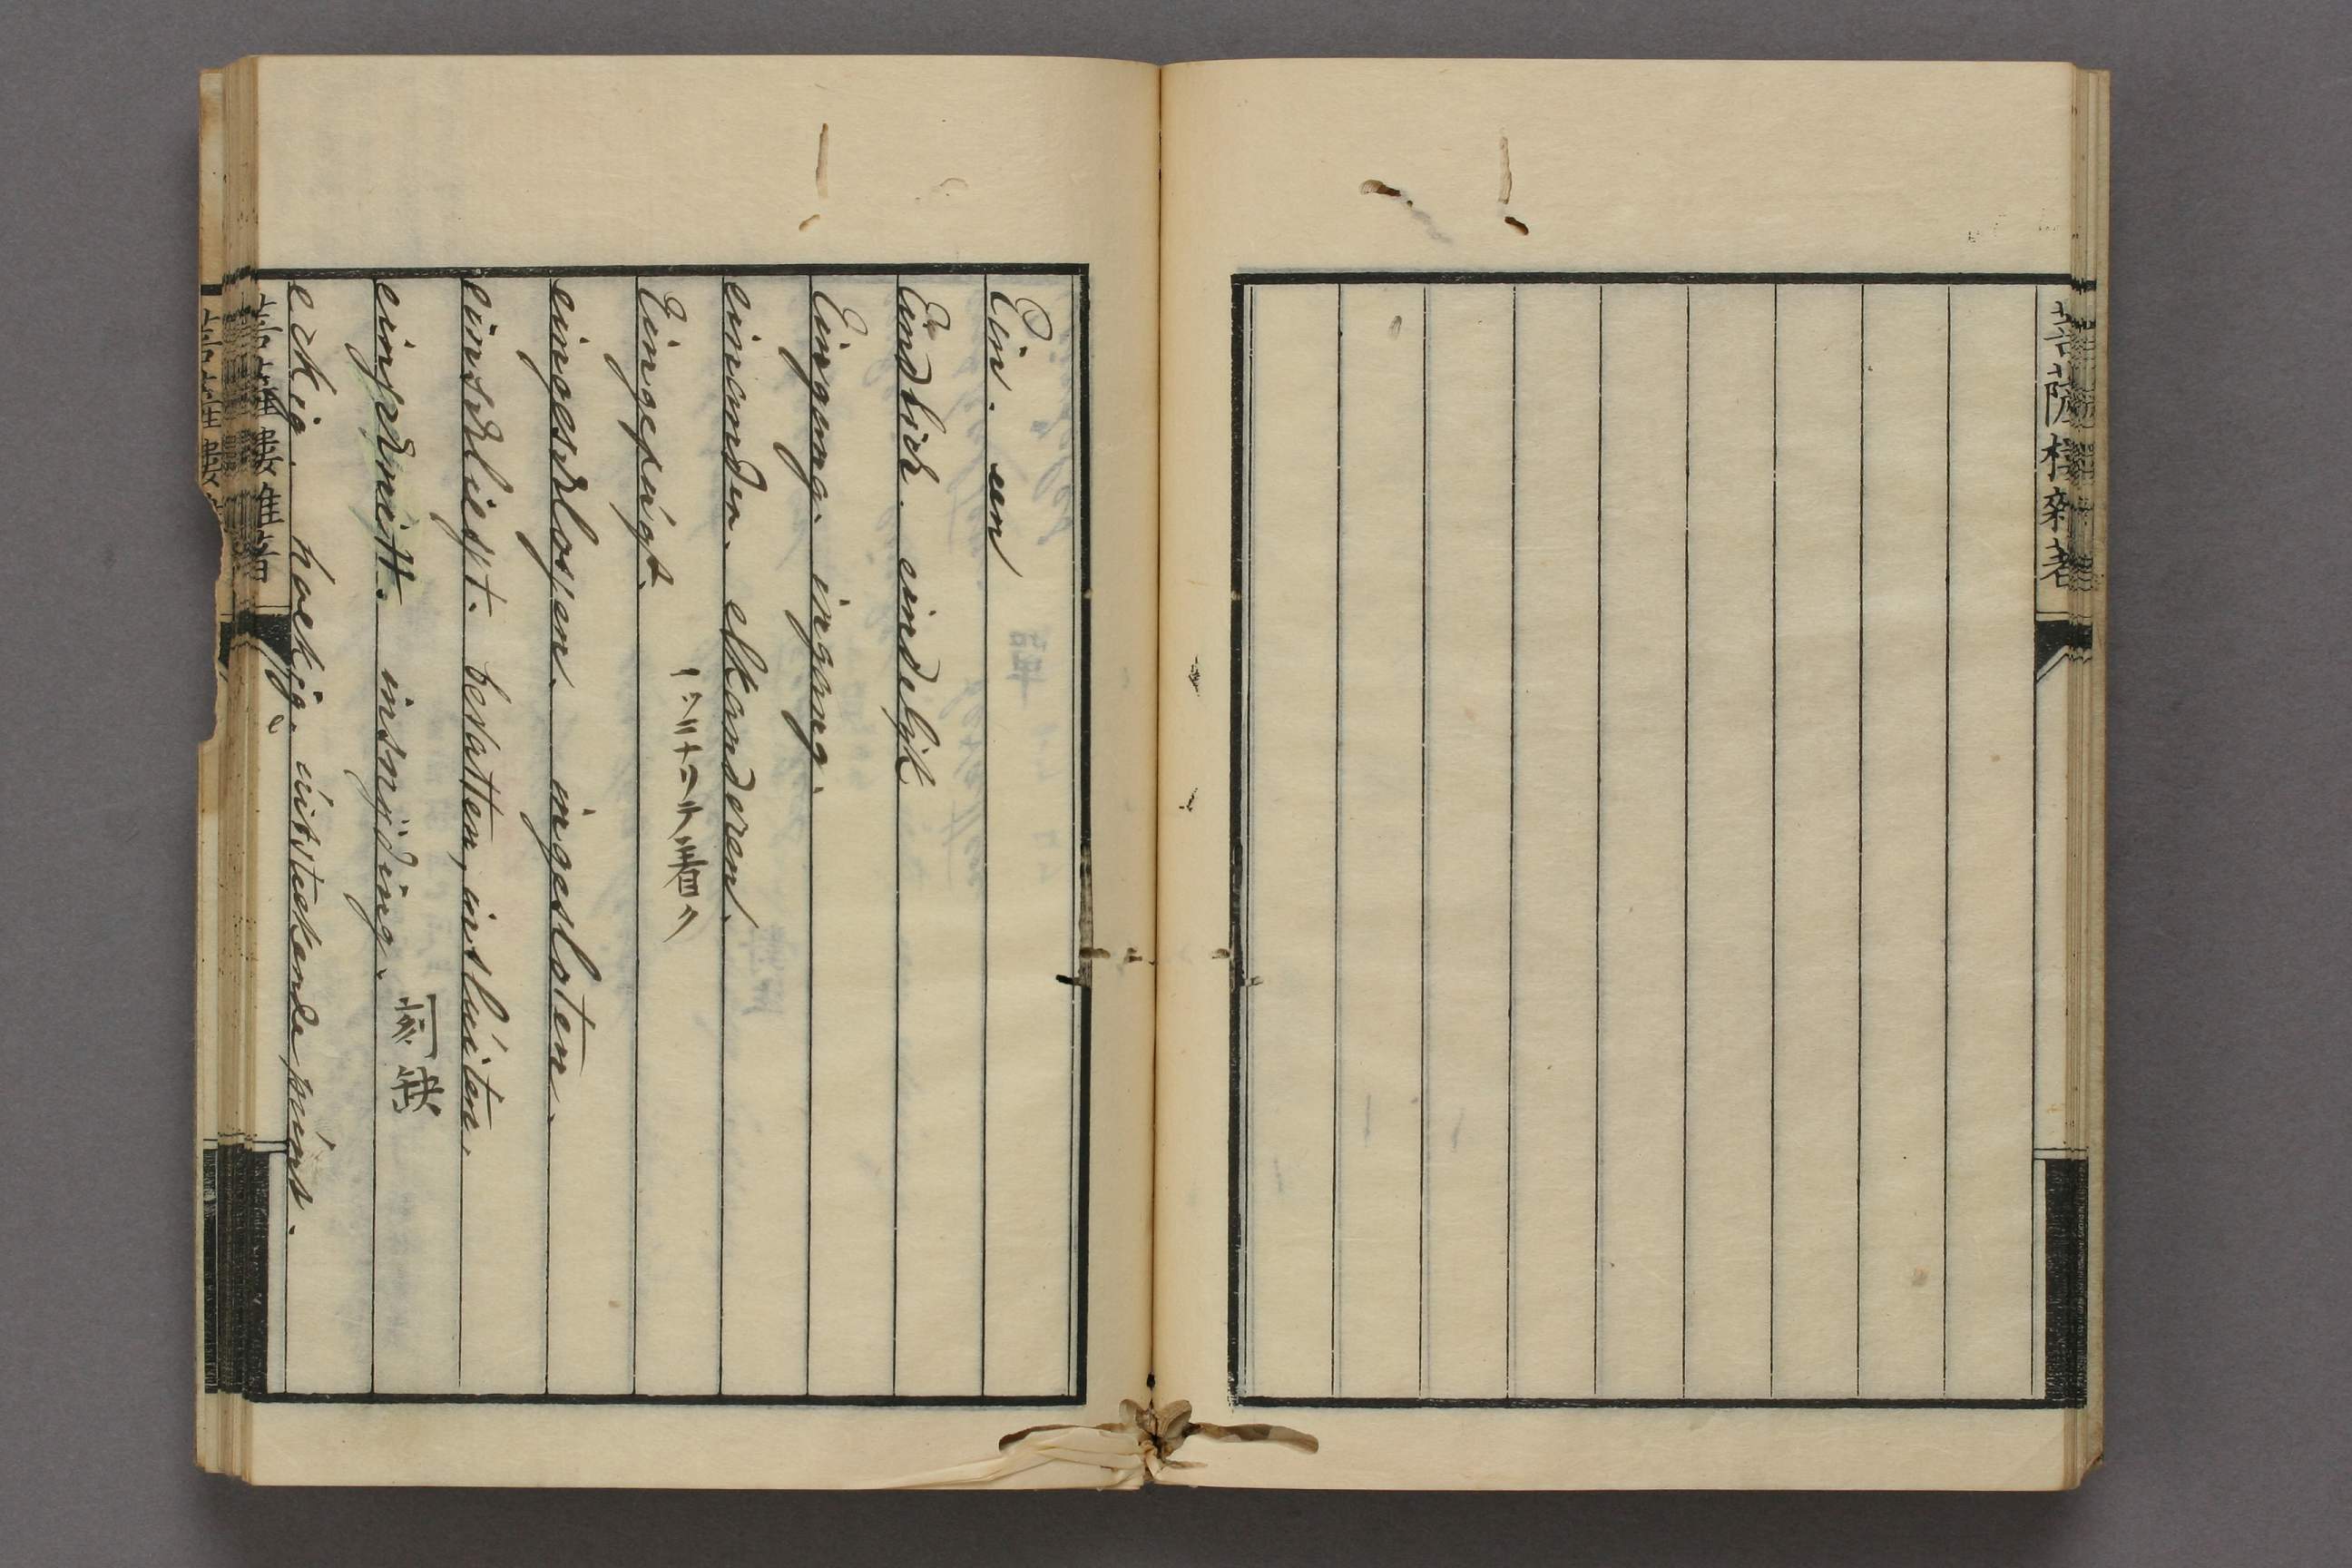 菩薩樓雜著
Ein. een
Eindlich. eindelijk
Eingang. ingang.
einander. elkanderen.
Eingeprägt.
eingeschlossen. ingesloten.
einschliesst. besatten, insluiten.
einschnitt. insnijding. 刻缺
eckig. hoekig. uitstekende punt.
菩薩樓雜著